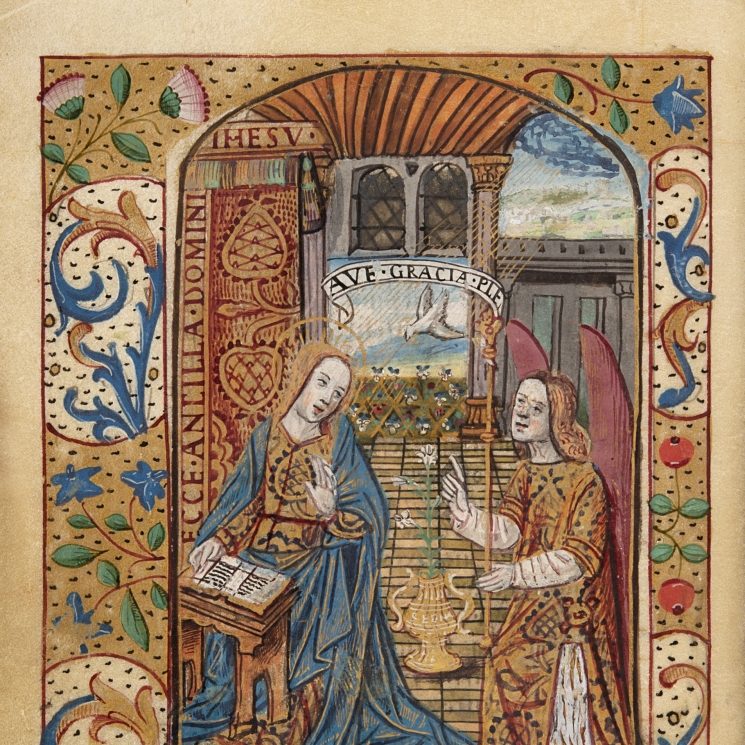 IHESV ·
ECCE · ANTILLA · DOMINI
AVE · GRACIA · PLE